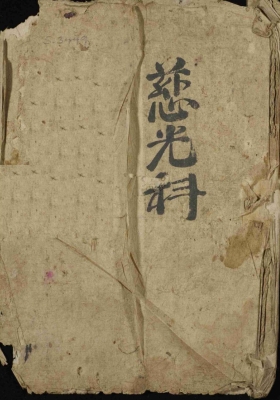 慈光科